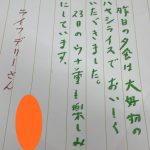 昨日の夕食は大好物の
ハヤシライスでおいしく
いただきました。
23日のウナ重も楽しみ
にしています。
ライフデリーさん